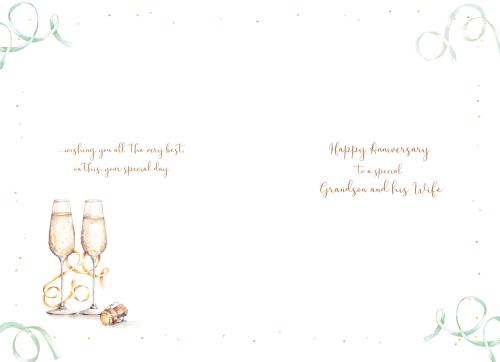 ...wishing you all the very best,
on this, your special day
Happy Anniversary
to a special
Grandson and his Wife